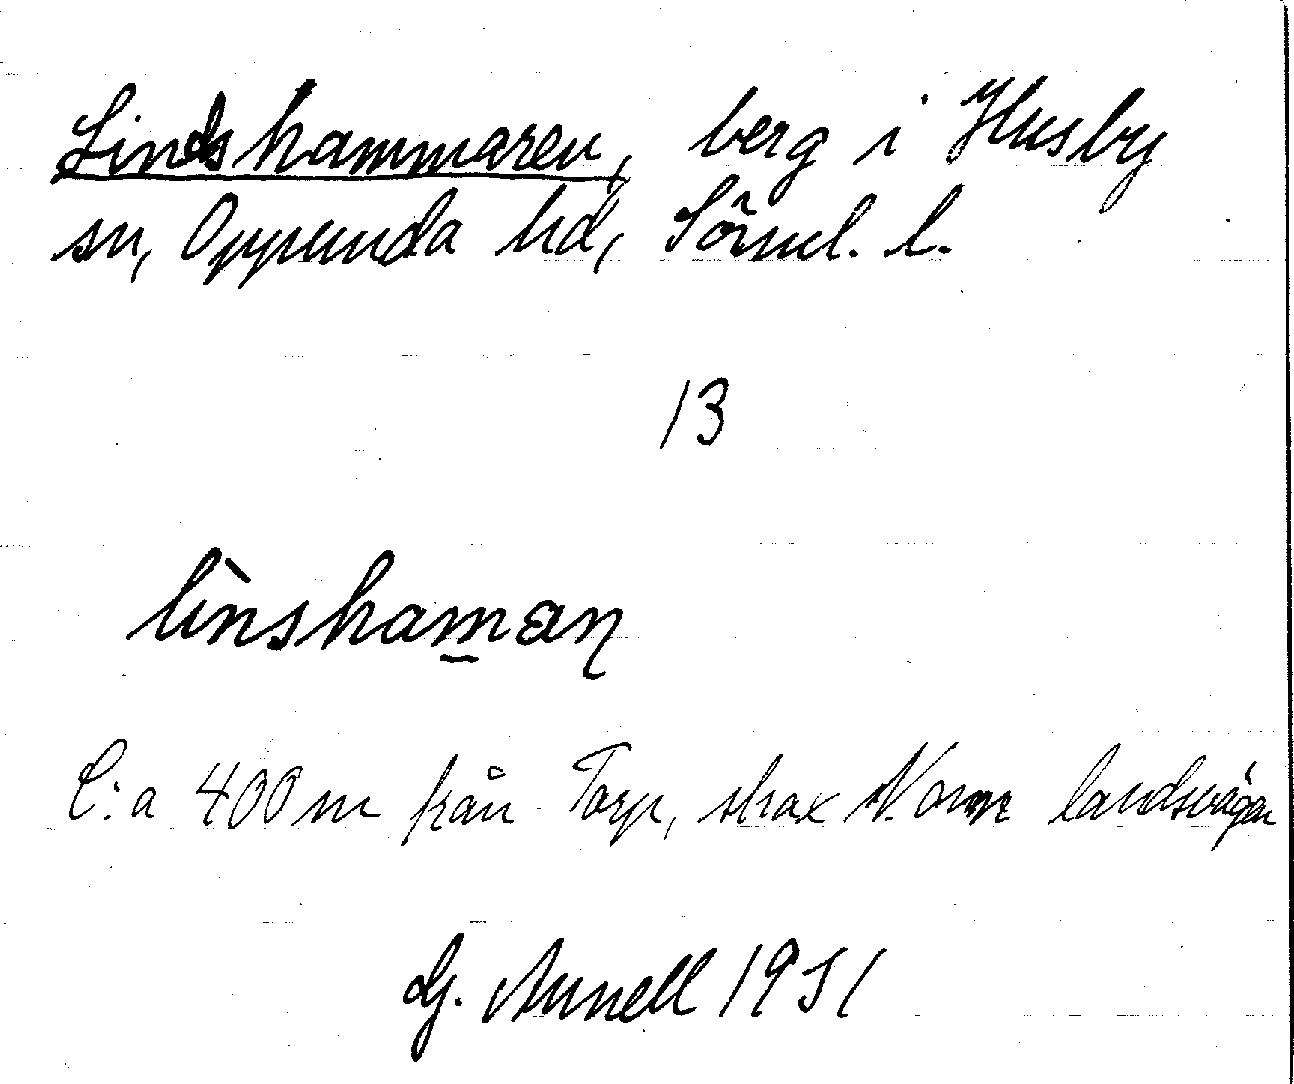 Lindshammaren, berg i Husby
sn, Oppunda hd, Söml. l.
13
lìnsham̲an
C:a 400 m från Torp, strax N. om landsvägen
G. Annell 1931